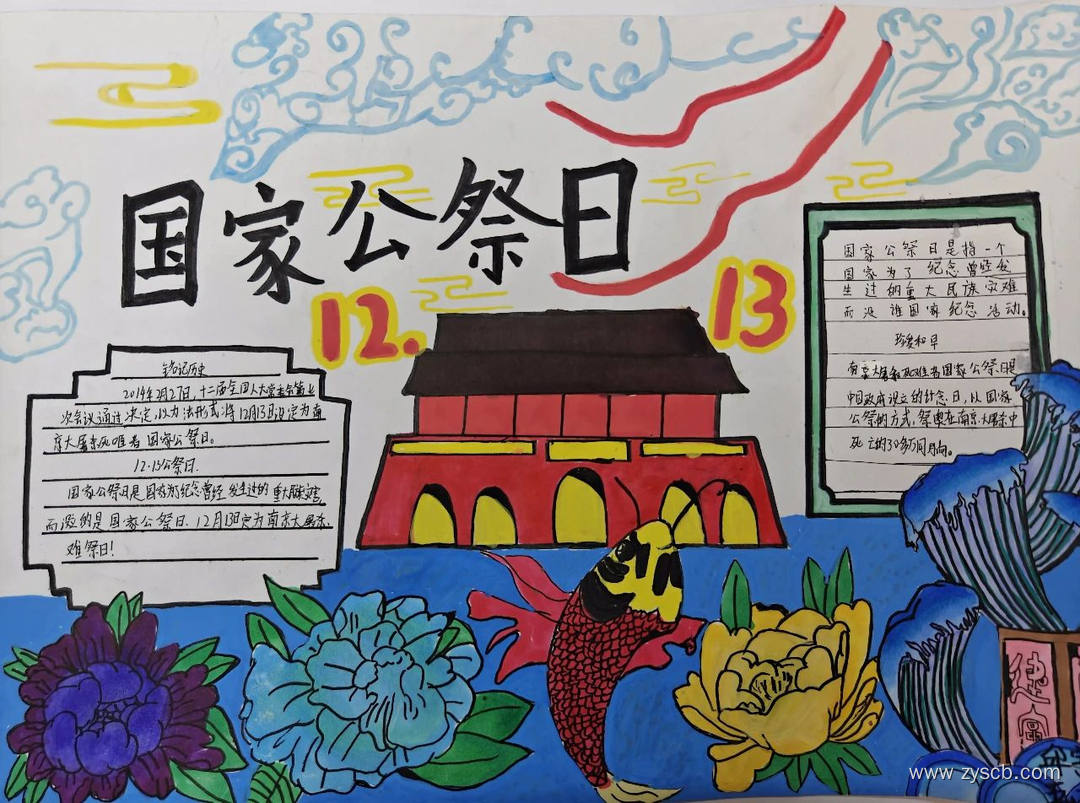 国家公祭日
12.13
铭记历史
2014年2月27日,十二届全国人大常委会第七
次会议通过决定,以为法形式将12月13日设定为南
京大屠杀死难者国家公祭日。
12.13公祭日.
国家公祭日是国家为纪念曾经发生过的重大民族灾害,
而设的是国家公祭日.12月13日定为南京大屠杀.
难祭日!
国家公祭日是指一个
国家为了纪念曾经发
生过的重大民族灾难
而设 国家纪念活动。
珍爱和平
南京大屠杀死难者国家公祭日是
中国政府设立的纪念日,以国家
公祭的方式,祭奠在南京大屠杀中
死亡的30多万同胞。
www.zyscb.com